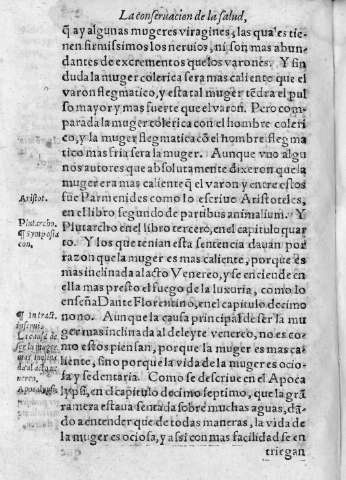 La conseruacion de la salud,
q̃ ay algunas mugeres viragines, las qua'es tie-
nen firmissimos los neruios, ni son mas abun-
dantes de excrementos que los varones. Y sin
duda la muger colerica sera mas caliente que el
varon flegmatico, y esta tal muger tẽdra el pul
so mayor y mas fuerte que el varon. Pero com-
parada la muger colerica con el hombre coleri-
co, y la muger flegmatica cõ el hombre flegma
tico mas fria sera la muger. Aunque vuo algu
nos autores que absolutamente dixeron que la
muger era mas caliente q̃ el varon y entre estos
fue Parmenides como lo escriue Aristoteles,
en el libro segundo de partibus animalium. Y
Plutarcho en el libro tercero, en el capitulo quar
to. Y los que tenian esta sentencia dauan por
razon que la muger es mas caliente, porque es
mas inclinada al acto Venereo, y se enciende en
ella mas presto el fuego de la luxuria, como lo
enseña Dante Florentino, en el capitulo decimo
nono. Aunque la causa principal de ser la mu
ger mas inclinada al deleyte venereo, no es co-
mo estos piensan, porque la muger es mas ca-
liente, sino porque la vida de la muger es ocio-
sa y sedentaria. Como se descriue en el Apoca
lypsi, en el capitulo decimo septimo, que la grã
ramera estaua sentada sobre muchas aguas, dã-
do a entender que de todas maneras, la vida de
la muger es ociosa, y assi con mas facilidad se en
triegan
Aristot.
Plutarcho.
¶ symposia
con.
¶ in tract.
inferni.
La causa de
ser la muger
mas inclina
da al acto ve
nereo.
Apocalypsis.